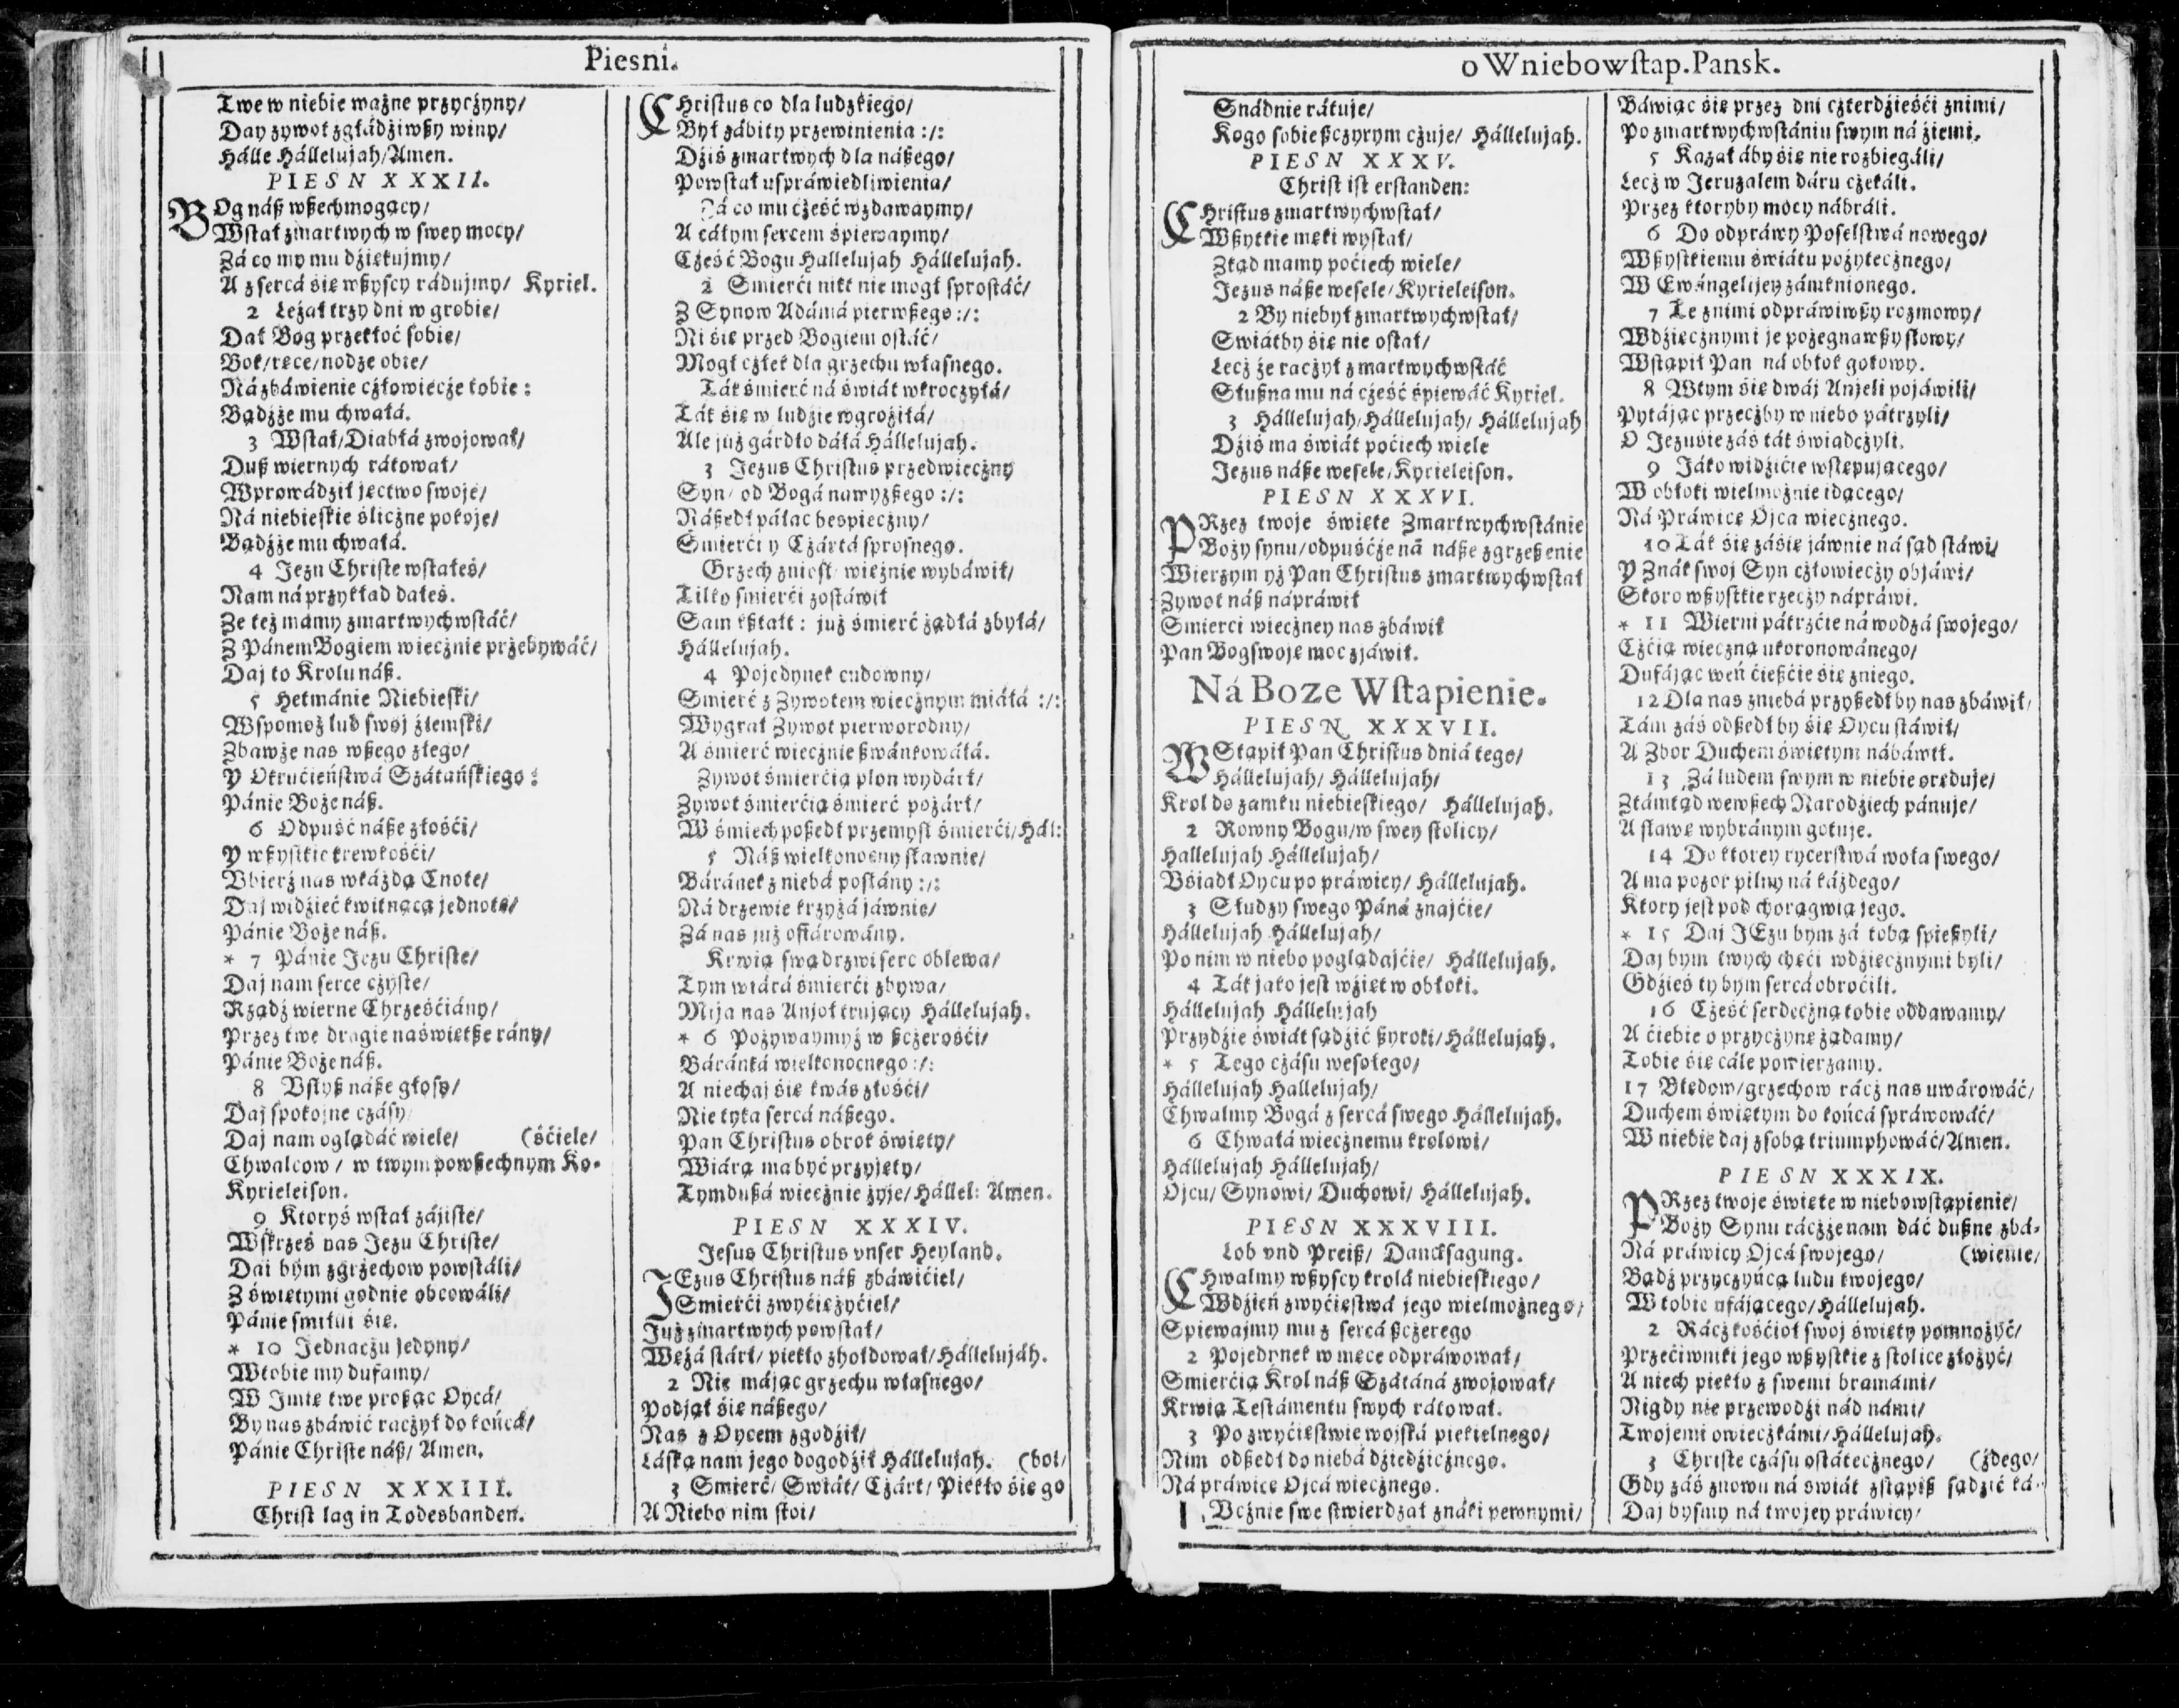 Piesni.
Twe w niebie ważne przyczyny/
Day zywot zgłádźiwßy winy/
Hálle Hállelujah/Amen.
PIESN XXXII.
BOg náß wßechmogący/
Wstał zmartwych w swey mocy/
Zá co my mu dźiękujmy/
A z sercá się wßyscy rádujmy/ Kyriel.
2 Leżał trzy dni w grobie/
Dał Bog przekłoć sobie/
Bok/ręce/nodze obie/
Ná zbáwienie człowiecze tobie:
Bądźże mu chwałá.
3 Wstał/Diabłá zwojował/
Duß wiernych rátował/
Wprowádźił jęctwo swoje/
Ná niebieskie śliczne pokoje/
Bądźże mu chwałá.
4 Jezu Christe wstałeś/
Nam ná przykład dałeś.
Ze też mamy zmartwychwstáć/
Z Pánem Bogiem wiecznie przebywáć/
Daj to Krolu náß.
5 Hetmánie Niebieski/
Wspomoż lud swoj źiemski/
Zbawże nas wßego złego/
Y Okrućieństwá Szátańskiego:
Pánie Boże náß.
6 Odpuść náße złośći/
Y wßystkie krewkośći/
Vbierz nas wkáżdą Cnotę/
Daj widźieć kwitnącą jednotę/
Pánie Boże náß.
* 7 Pánie Jezu Christe/
Daj nam serce czyste/
Rządź wierne Chrześćiány/
Przez twe drogie naświętße rány/
Pánie Boże náß.
8 Vslyß náße głosy/
Daj spokojne czásy
Daj nam oglądáć wiele/ (śćiele/
Chwalcow/ w twym powßechnym Ko-
Kyrieleison.
9 Ktoryś wstał zájiste/
Wskrześ nas Jezu Christe/
Dai bym z grzechow powstáli/
Z świętymi godnie obcowáli/
Pánie smiłui się.
* 10 Jednaczu jedyny/
W tobie my dufamy/
W Jmię twe proßąc Oycá/
By nas zbáwić raczył do końcá/
Pánie Christe náß/ Amen.
PIESN XXXIII.
Christ lag in Todesbanden.
CHristus co dla ludzkiego/
Był zábity przewinienia :/:
Dźiś zmartwych dla náßego/
Powstał uspráwiedliwienia/
Zá co mu cześć wzdawaymy/
A cáłym sercem śpiewaymy/
Cześć Bogu Hallelujah Hállelujah.
2 Smierći nikt nie mogł sprostáć/
Z Synow Adámá pierwßego :/:
Ni się przed Bogiem ostáć/
Mogł człek dla grzechu własnego.
Ták śmierć ná świát wkroczyłá/
Ták się w ludźie wgroźiłá/
Ale już gárdło dáłá Hállelujah.
3 Jezus Christus przedwieczny
Syn/ od Bogá nawyzßego :/:
Náßedł páłac bespieczny/
Smierći y Czártá sprosnego.
Grzech zniosł/ więźnie wybáwił/
Tilko śmierći zostáwił
Sam kßtałt: już śmierć żądłá zbyłá/
Hállelujah.
4 Pojedynek cudowny/
Smierć z Zywotem wiecznym miáłá :/:
Wygrał Zywot pierworodny/
A śmierć wiecznie ßwánkowáłá.
Zywot śmierćią plon wydárł/
Zywot śmierćią śmierć pożárł/
W śmiech poßedł przemysł śmierći/Hál:
5 Náß wielkonocny sławnie/
Báránek z niebá posłány :/:
Ná drzewie krzyżá jáwnie/
Zá nas już ofiárowány.
Krwią swą drzwi serc oblewa/
Tym wiárá śmierći zbywa/
Mija nas Anjoł trujący Hállelujah.
* 6 Pożywaymyż w ßczerośći/
Báránká wielkonocnego :/:
A niechaj się kwás złośći/
Nie tyka sercá náßego.
Pan Christus obrok święty/
Wiárą ma być przyjęty/
Tym dußá wiecznie żyje/ Hállel: Amen.
PIESN XXXIV.
Jesus Christus vnser Heyland.
JEzus Christus náß zbáwićiel/
Smierći zwyćiężyćiel/
Już zmartwych powstał/
Wężá stárł/ piekło zhołdował/Hállelujáh.
2 Nie májąc grzechu własnego/
Podjął się náßego/
Nas z Oycem zgodźił/
Łáską nam jego dogodźił Hállelujah. (boi/
3 Smierć/ Swiát/ Czárt/ Piekło się go
A Niebo nim stoi/
o Wniebowstap. Pansk.
Snádnie rátuje/
Kogo sobie ßczyrym czuje/ Hállelujah.
PIESN XXXV.
Christ ist erstanden:
CHristus zmartwychwstał/
Wßytkie męki wystał/
Ztąd mamy poćiech wiele/
Jezus náße wesele/Kyrieleison.
2 By niebył zmartwychwstał/
Swiátby się nie ostał/
Lecz że raczył zmartwychwstáć
Słußna mu ná cześć śpiewáć Kyriel.
3 Hállelujah/Hállelujah/ Hállelujah
Dźiś ma świát poćiech wiele
Jezus náße wesele/Kyrieleison.
PIESN XXXVI.
PRzez twoje święte Zmartwychwstánie
Boży synu/odpuśćże nā náße zgrzeßenie
Wierzym yż Pan Christus zmartwychwstał
Zywot náß nápráwił
Smierci wieczney nas zbáwił
Pan Bog swoję moc zjáwił.
Ná Boze Wstapienie.
PIESN XXXVII.
WStąpił Pan Christus dniá tego/
Hállelujah/ Hállelujah/
Krol do zamku niebieskiego/ Hállelujah.
2 Rowny Bogu/w swey stolicy/
Hallelujah Hállelujah/
Vśiadł Oycu po práwicy/ Hállelujah.
3 Słudzy swego Páná znajćie/
Hállelujah Hállelujah/
Po nim w niebo poglądajćie/ Hállelujah.
4 Ták jako jest wźięt w obłoki.
Hállelujah Hállelujah
Przydźie świát sądźić ßyroki/Hállelujah.
* 5 Tego czásu wesołego/
Hállelujah Hallelujah/
Chwalmy Bogá z sercá swego Hállelujah.
6 Chwałá wiecznemu krolowi/
Hállelujah Hállelujah/
Ojcu/ Synowi/ Duchowi/ Hállelujah.
PIESN XXXVIII.
Lob vnd Preiß/ Dancksagung.
CHwalmy wßyscy krolá niebieskiego/
Wdźień zwyćięstwá jego wielmożnego/
Spiewajmy mu z sercá ßczerego
2 Pojedynek w męce odpráwował/
Smierćią Krol náß Szátáná zwojował/
Krwią Testámentu swych rátował.
3 Po zwyćięstwie wojská piekielnego/
Nim odßedł do niebá dźiedźicznego.
Ná práwicę Ojcá wiecznego.
Vcznie swe stwierdzał znáki pewnymi/
Báwiąc się przez dni czterdźieśći z nimi/
Po zmartwychwstániu swym ná źiemi.
5 Kazał áby się nie rozbiegáli/
Lecz w Jeruzalem dáru czekáli.
Przez ktoryby mocy nábráli.
6 Do odpráwy Poselstwá nowego/
Wßystkiemu świátu pożytecznego/
W Ewángelijey zámknionego.
7 Te z nimi odpráwiwßy rozmowy/
Wdźięcznymi je pożegnawßy słowy/
Wstąpił Pan ná obłok gotowy.
8 Wtym się dwáj Anjeli pojáwili/
Pytájąc przeczby w niebo pátrzyli/
O Jezusie záś ták świadczyli.
9 Jáko widźićie wstępującego/
W obłoki wielmożnie idącego/
Ná Práwicę Ojca wiecznego.
10 Ták się záśię jáwnie ná sąd stáwi/
Y Znák swoj Syn człowieczy objáwi/
Skoro wßystkie rzeczy nápráwi.
* 11 Wierni pátrzćie ná wodzá swojego/
Czćią wieczną ukoronowánego/
Dufájąc weń ćießćie się z niego.
12 Dla nas z niebá przyßedł by nas zbáwił/
Tám záś odßedł by się Oycu stáwił/
A Zbor Duchem świętym nábáwił.
13 Zá ludem swym w niebie oręduje/
Ztámtąd wewßech Narodźiech pánuje/
A sławę wybránym gotuje.
14 Do ktorey rycerstwá woła swego/
A ma pozor pilny ná káżdego/
Ktory jest pod chorągwią jego.
* 15 Daj JEzu bym zá tobą spießyli/
Daj bym twych chęći wdźięcznymi byli/
Gdźieś ty bym sercá obroćili.
16 Cześć serdeczną tobie oddawamy/
A ćiebie o przyczynę żądamy/
Tobie się cále powierzamy.
17 Błędow/grzechow rácz nas uwárowáć/
Duchem świętym do końcá spráwowáć/
W niebie daj z sobą triumphowáć/Amen.
PIESN XXXIX.
PRzez twoje święte w niebowstąpienie/
Boży Synu ráczże nam dáć dußne zbá-
Ná práwicy Ojcá swojego/ (wienie/
Bądź przyczyńcą ludu twojego/
W tobie ufájącego/Hállelujah.
2 Rácz kośćioł swoj święty pomnożyć/
Przećiwniki jego wßystkie z stolice złożyć/
A niech piekło z swemi bramámi/
Nigdy nie przewodźi nád námi/
Twojemi owieczkámi/Hállelujah.
3 Christe czásu ostátecznego/ (żdego/
Gdy záś znowu ná swiát zstąpiß sądzić ká-
Daj bysmy ná twojey práwicy/